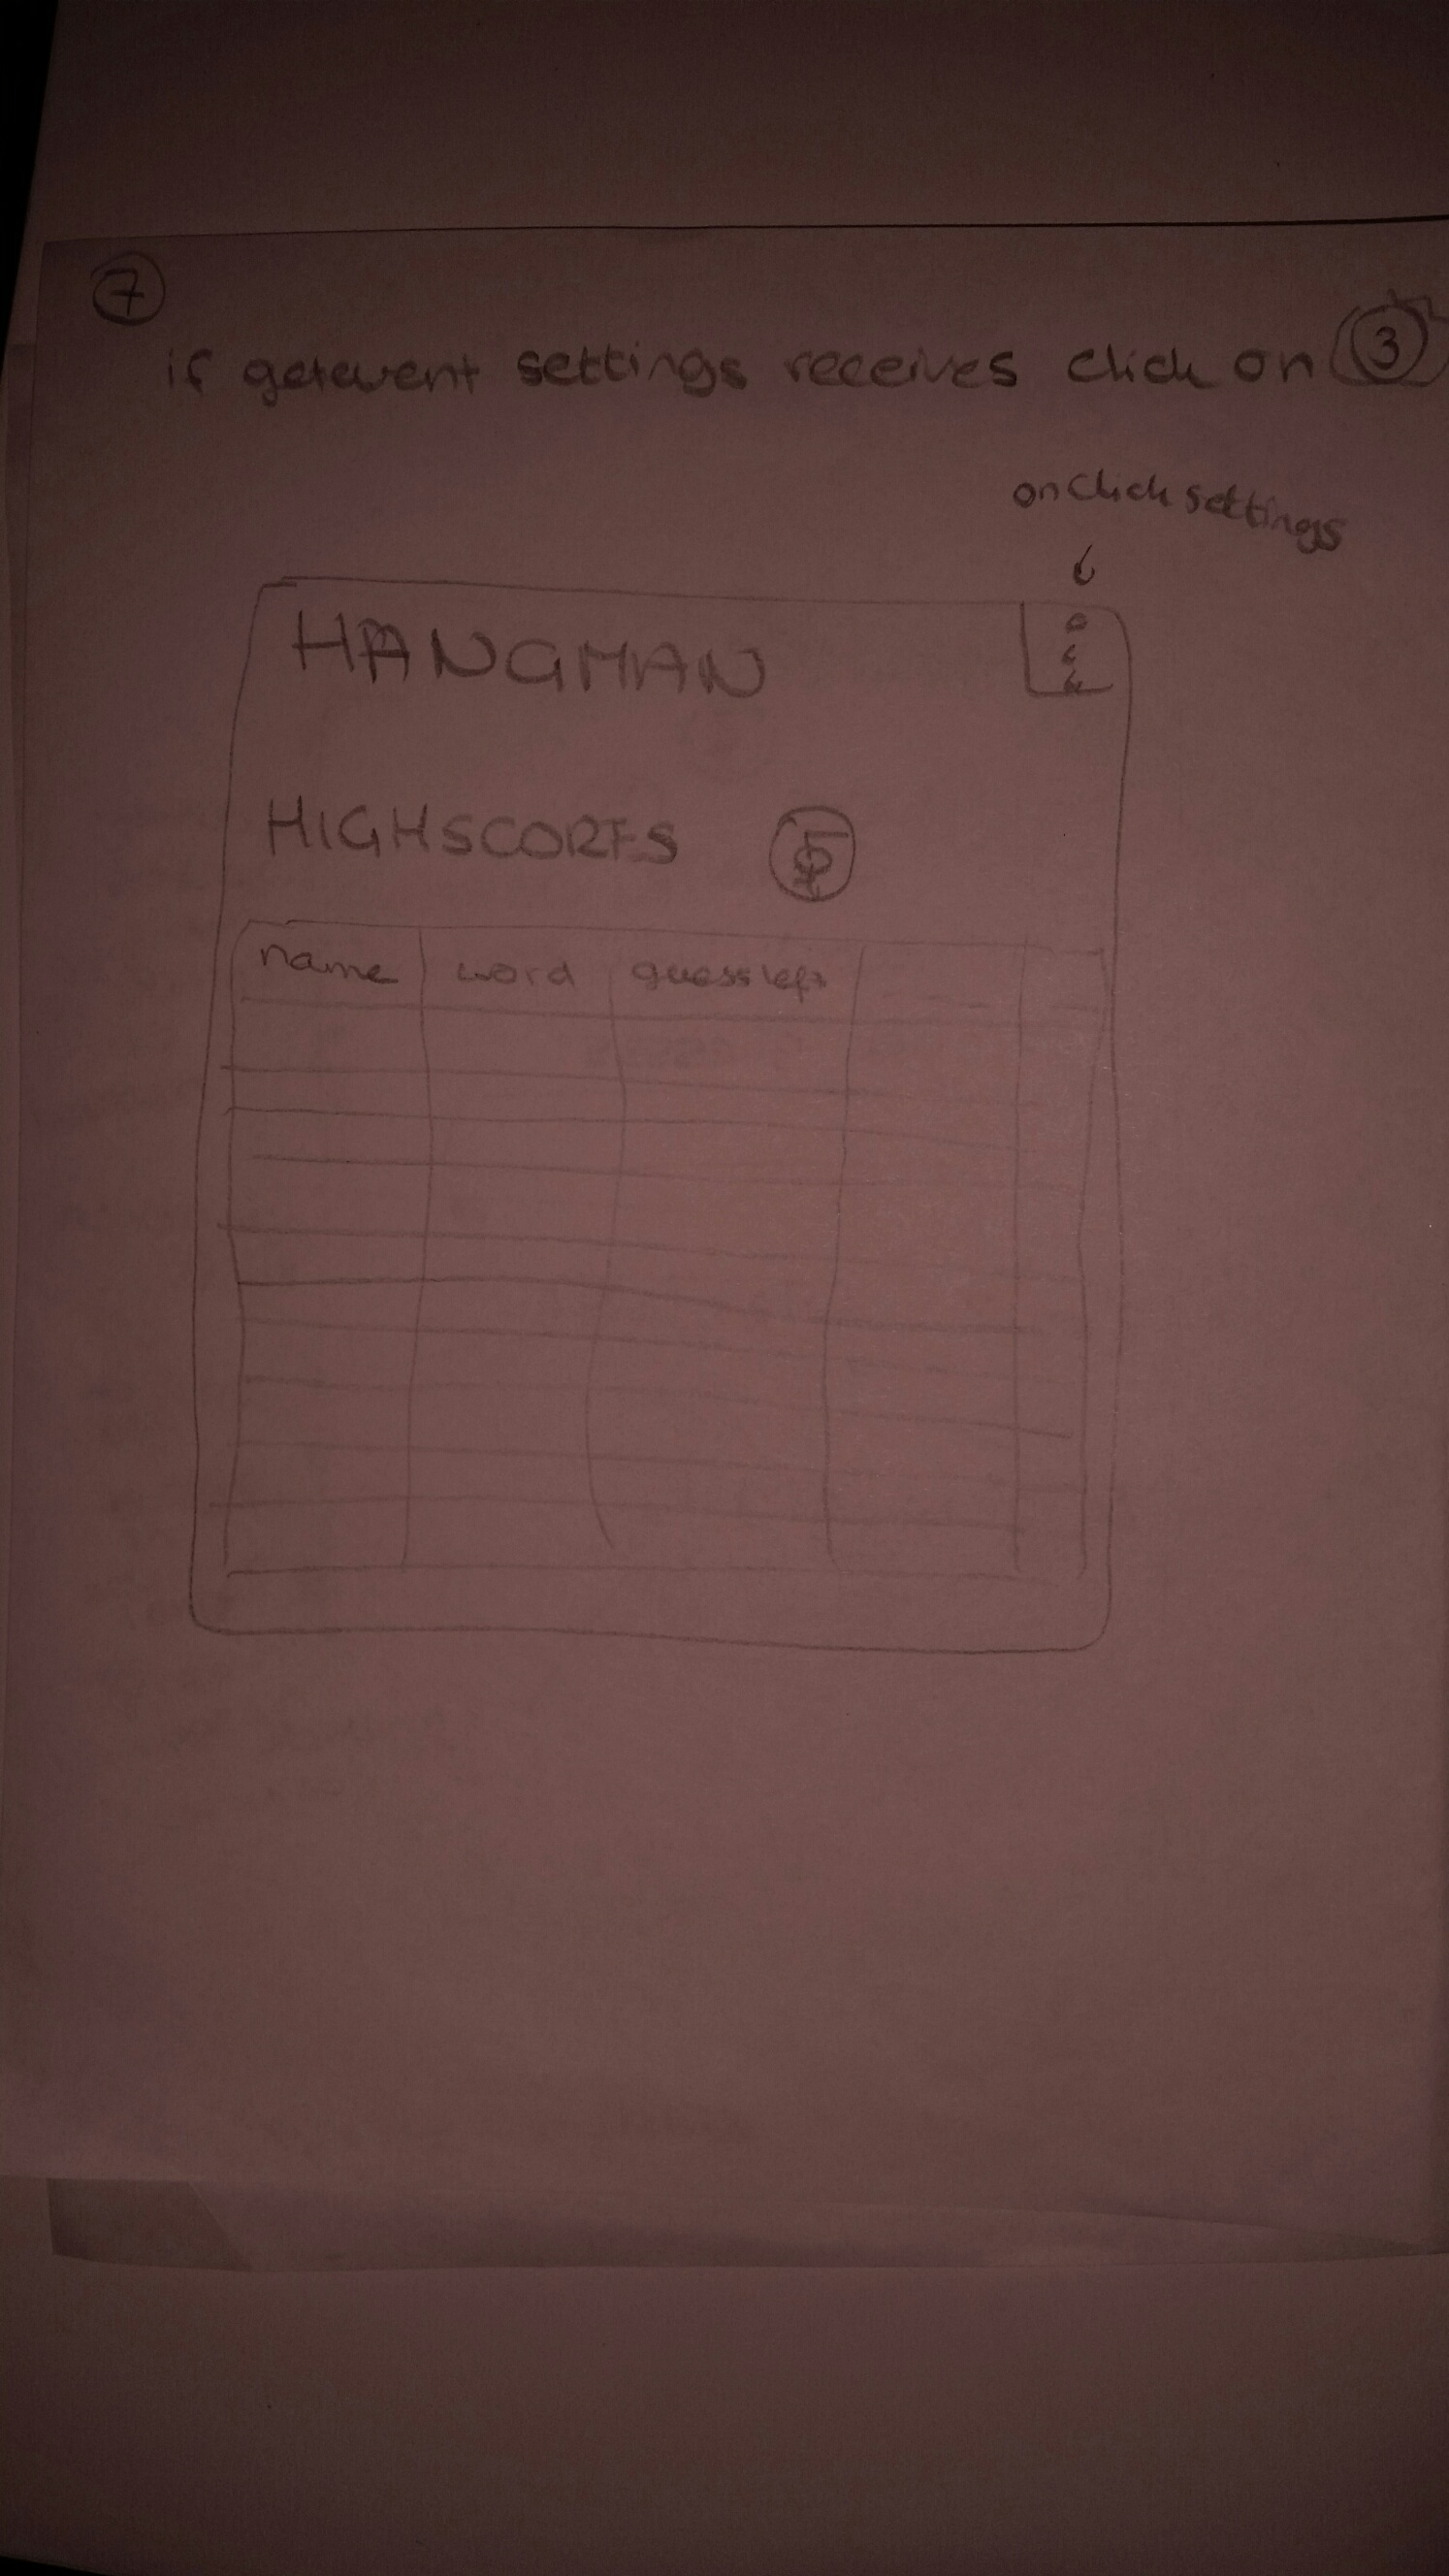 7
if getevent settings receives click on 3
onClick settings
HANGMAN
HIGHSCORES
name word guess left